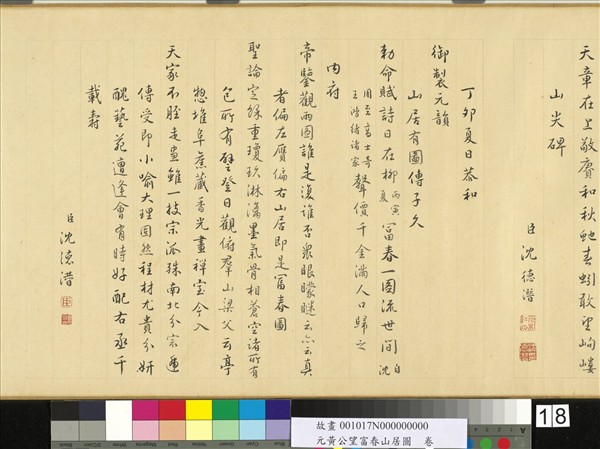 天章在上敢賡和秋虵春蚓敢望岣嶁
山尖碑
臣沈德潛
丁卯夏日恭和
御製元韻
山居有圖傳子久
勅命賦詩日在柳丙寅夏富春一圖流世間自沈
周至高士奇王鴻緒諸家聲價千金滿人口歸之
內府
帝鑒觀兩圖誰是復誰否眾眼矇瞇云亦云真
者偏左贗偏右山居即是富春圖
聖論定後重瓊玖淋漓墨氣骨相蒼空諸所有
包所有譬登日觀俯羣山梁父云亭
惣堆阜舊藏香光畫禪室今入
天家不脛走畫雖一技宗派殊南北分宗遞
傳受即小喻大理固然程材尤貴分妍
醜藝苑遭逢會有時好配右丞千
載壽
臣沈德潛
故畫 001017N000000000
元黃公望富春山居圖 卷
18